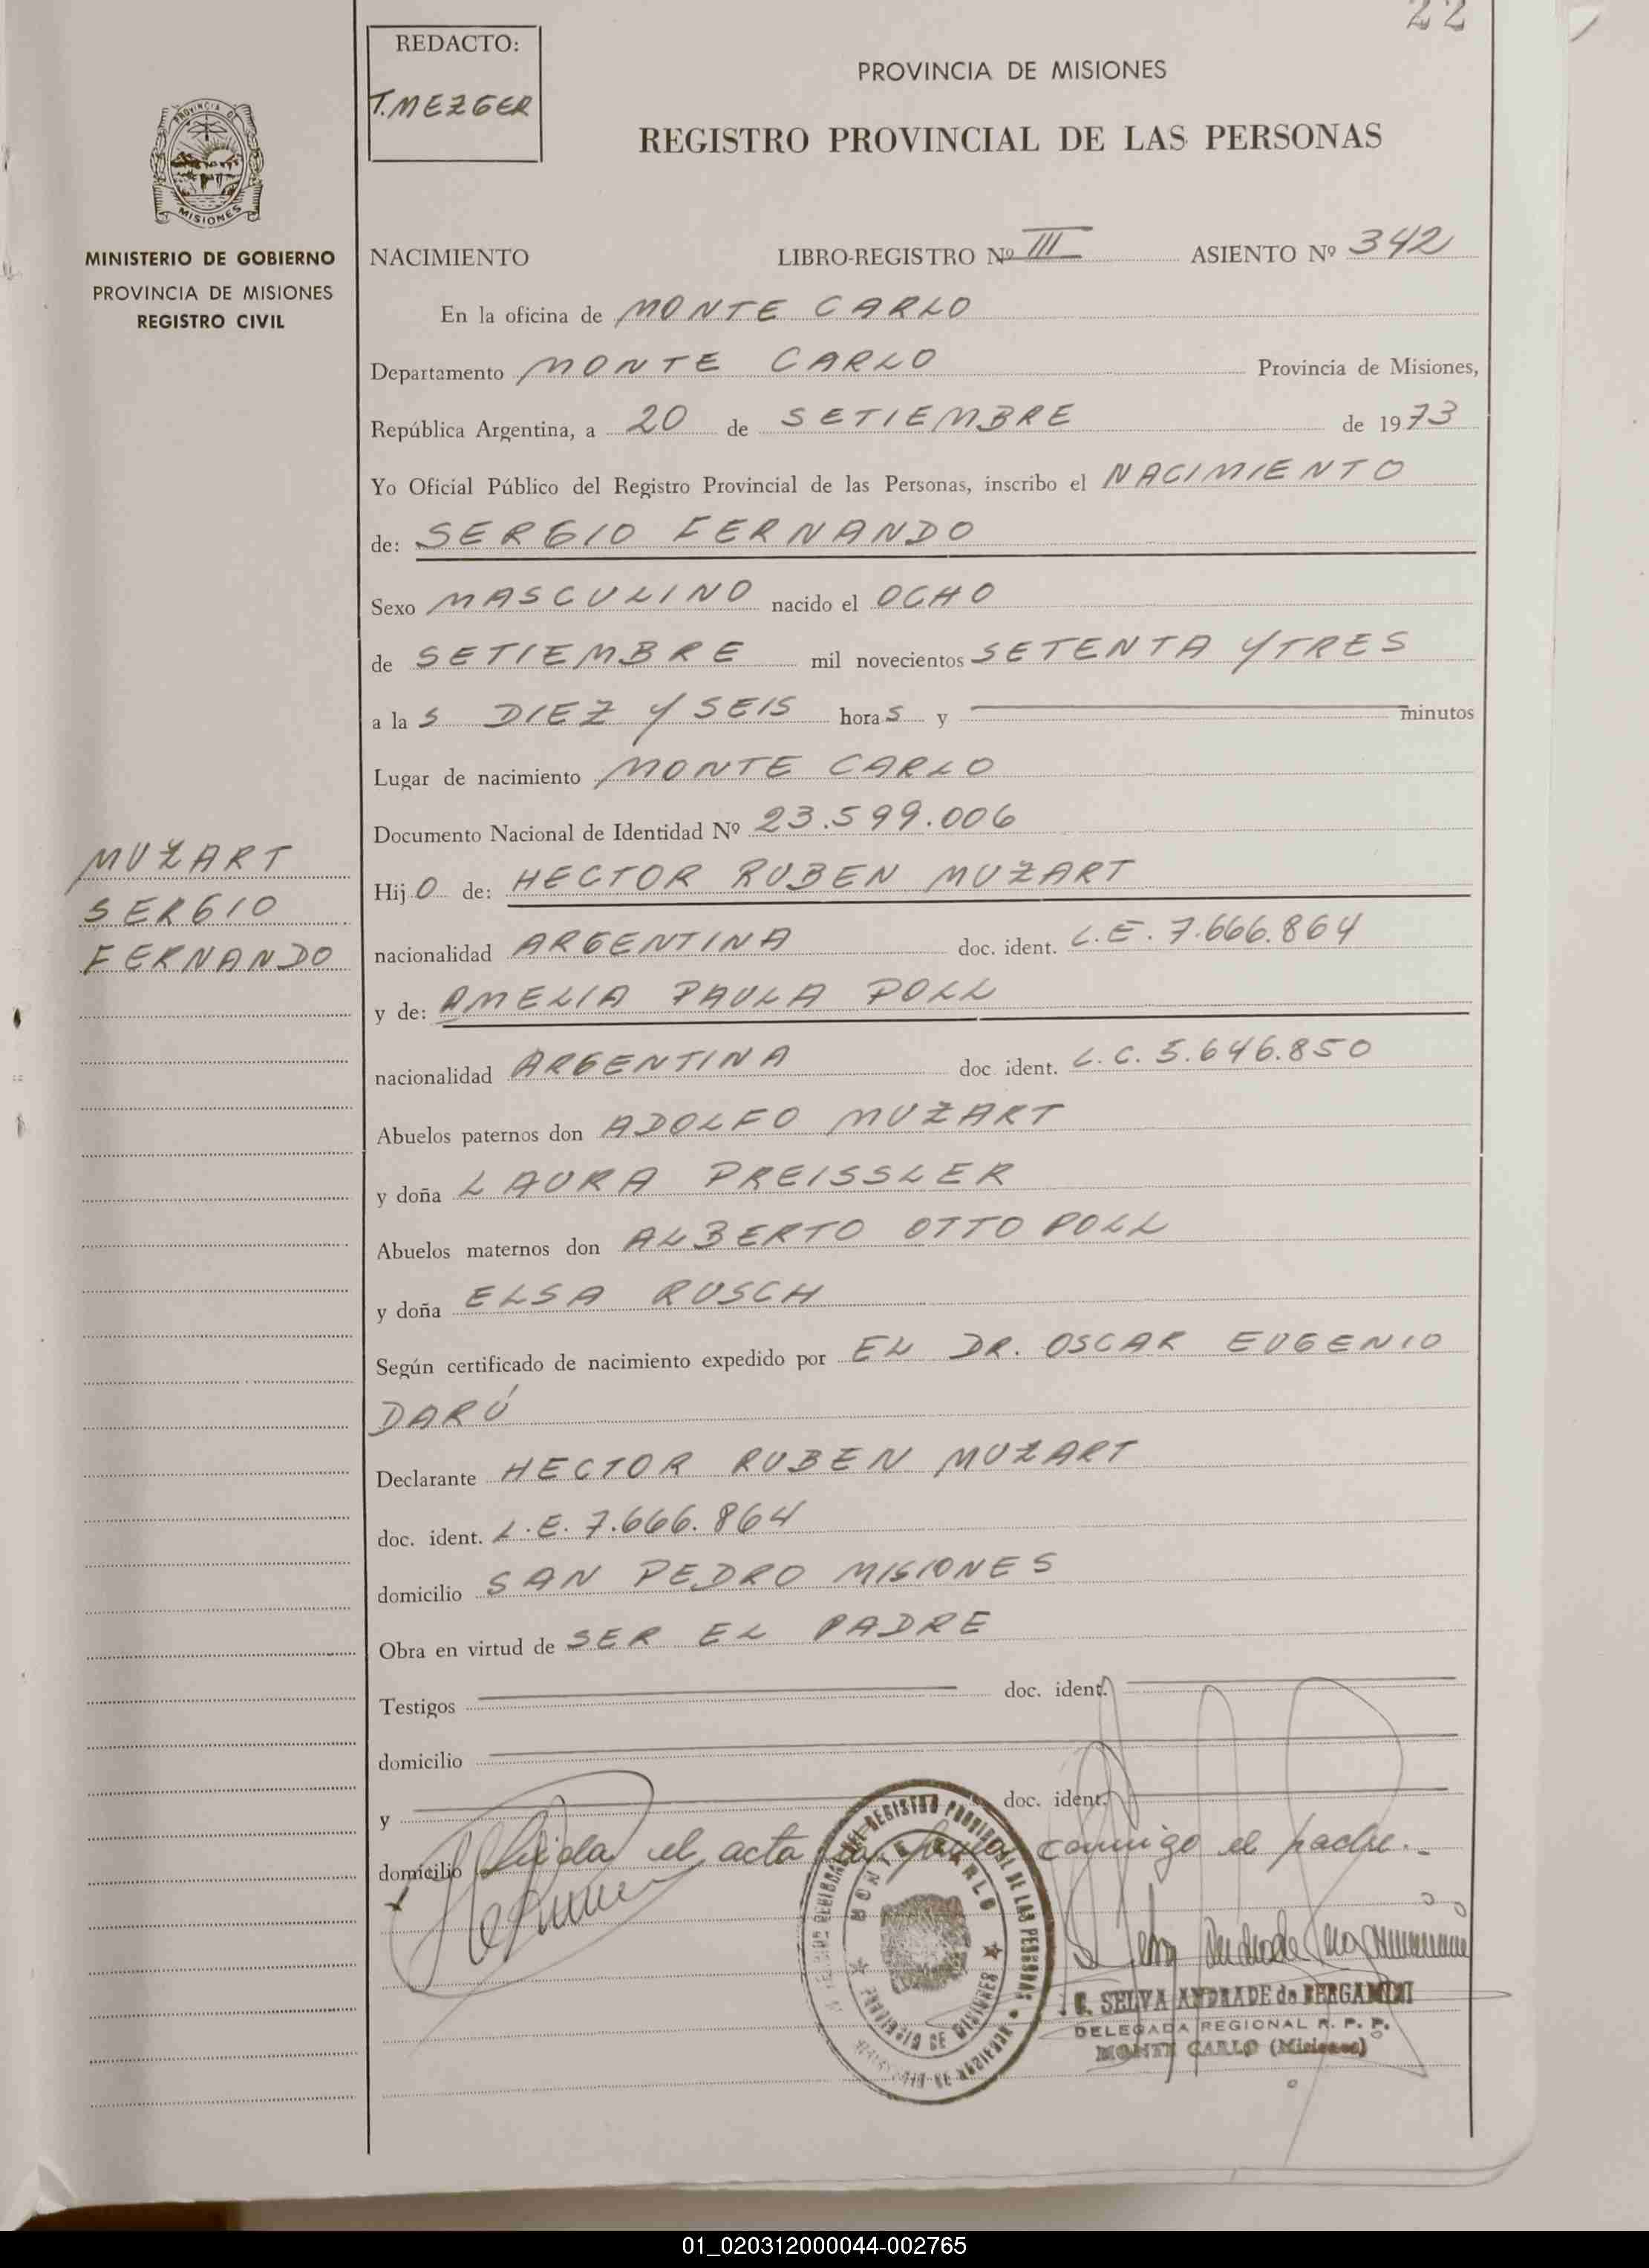 22
REDACTO:
T. MEZGER
PROVINCIA DE MISIONES
REGISTRO PROVINCIAL DE LAS PERSONAS
PROVINCIA DE
MISIONES
MINISTERIO DE GOBIERNO
PROVINCIA DE MISIONES
REGISTRO CIVIL
NACIMIENTO LIBRO-REGISTRO Nº III ASIENTO Nº 342
En la oficina de MONTE CARLO
Departamento MONTE CARLO Provincia de Misiones,
República Argentina, a 20 de SETIEMBRE de 1973
Yo Oficial Público del Registro Provincial de las Personas, inscribo el NACIMIENTO
de: SERGIO FERNANDO
Sexo MASCULINO nacido el OCHO
de SETIEMBRE mil novecientos SETENTA Y TRES
a la s DIEZ Y SEIS hora s y minutos
Lugar de nacimiento MONTE CARLO
Documento Nacional de Identidad Nº 23.599.006
MUZART
SERGIO
FERNANDO
Hij O de: HECTOR RUBEN MUZART
nacionalidad ARGENTINA doc. ident. L.E. 7.666.864
y de: AMELIA PAULA POLL
nacionalidad ARGENTINA doc. ident. L.C. 5.646.850
Abuelos paternos don ADOLFO MUZART
y doña LAURA PREISSLER
Abuelos maternos don ALBERTO OTTO POLL
y doña ELSA RUSCH
Según certificado de nacimiento expedido por EL DR. OSCAR EUGENIO
DARÚ
Declarante HECTOR RUBEN MUZART
doc. ident. L.E. 7.666.864
domicilio SAN PEDRO MISIONES
Obra en virtud de SER EL PADRE
Testigos doc. ident.
domicilio
y doc. ident.
domicilio Leida el acta la firma conmigo el padre.-
REGISTRO PROVINCIAL DE LAS PERSONAS
MONTE CARLO
PROVINCIA DE MISIONES
C. SELVA ANDRADE de BERGAMINI
DELEGADA REGIONAL R. P. P.
MONTE CARLO (Misiones)
01_020312000044-002765